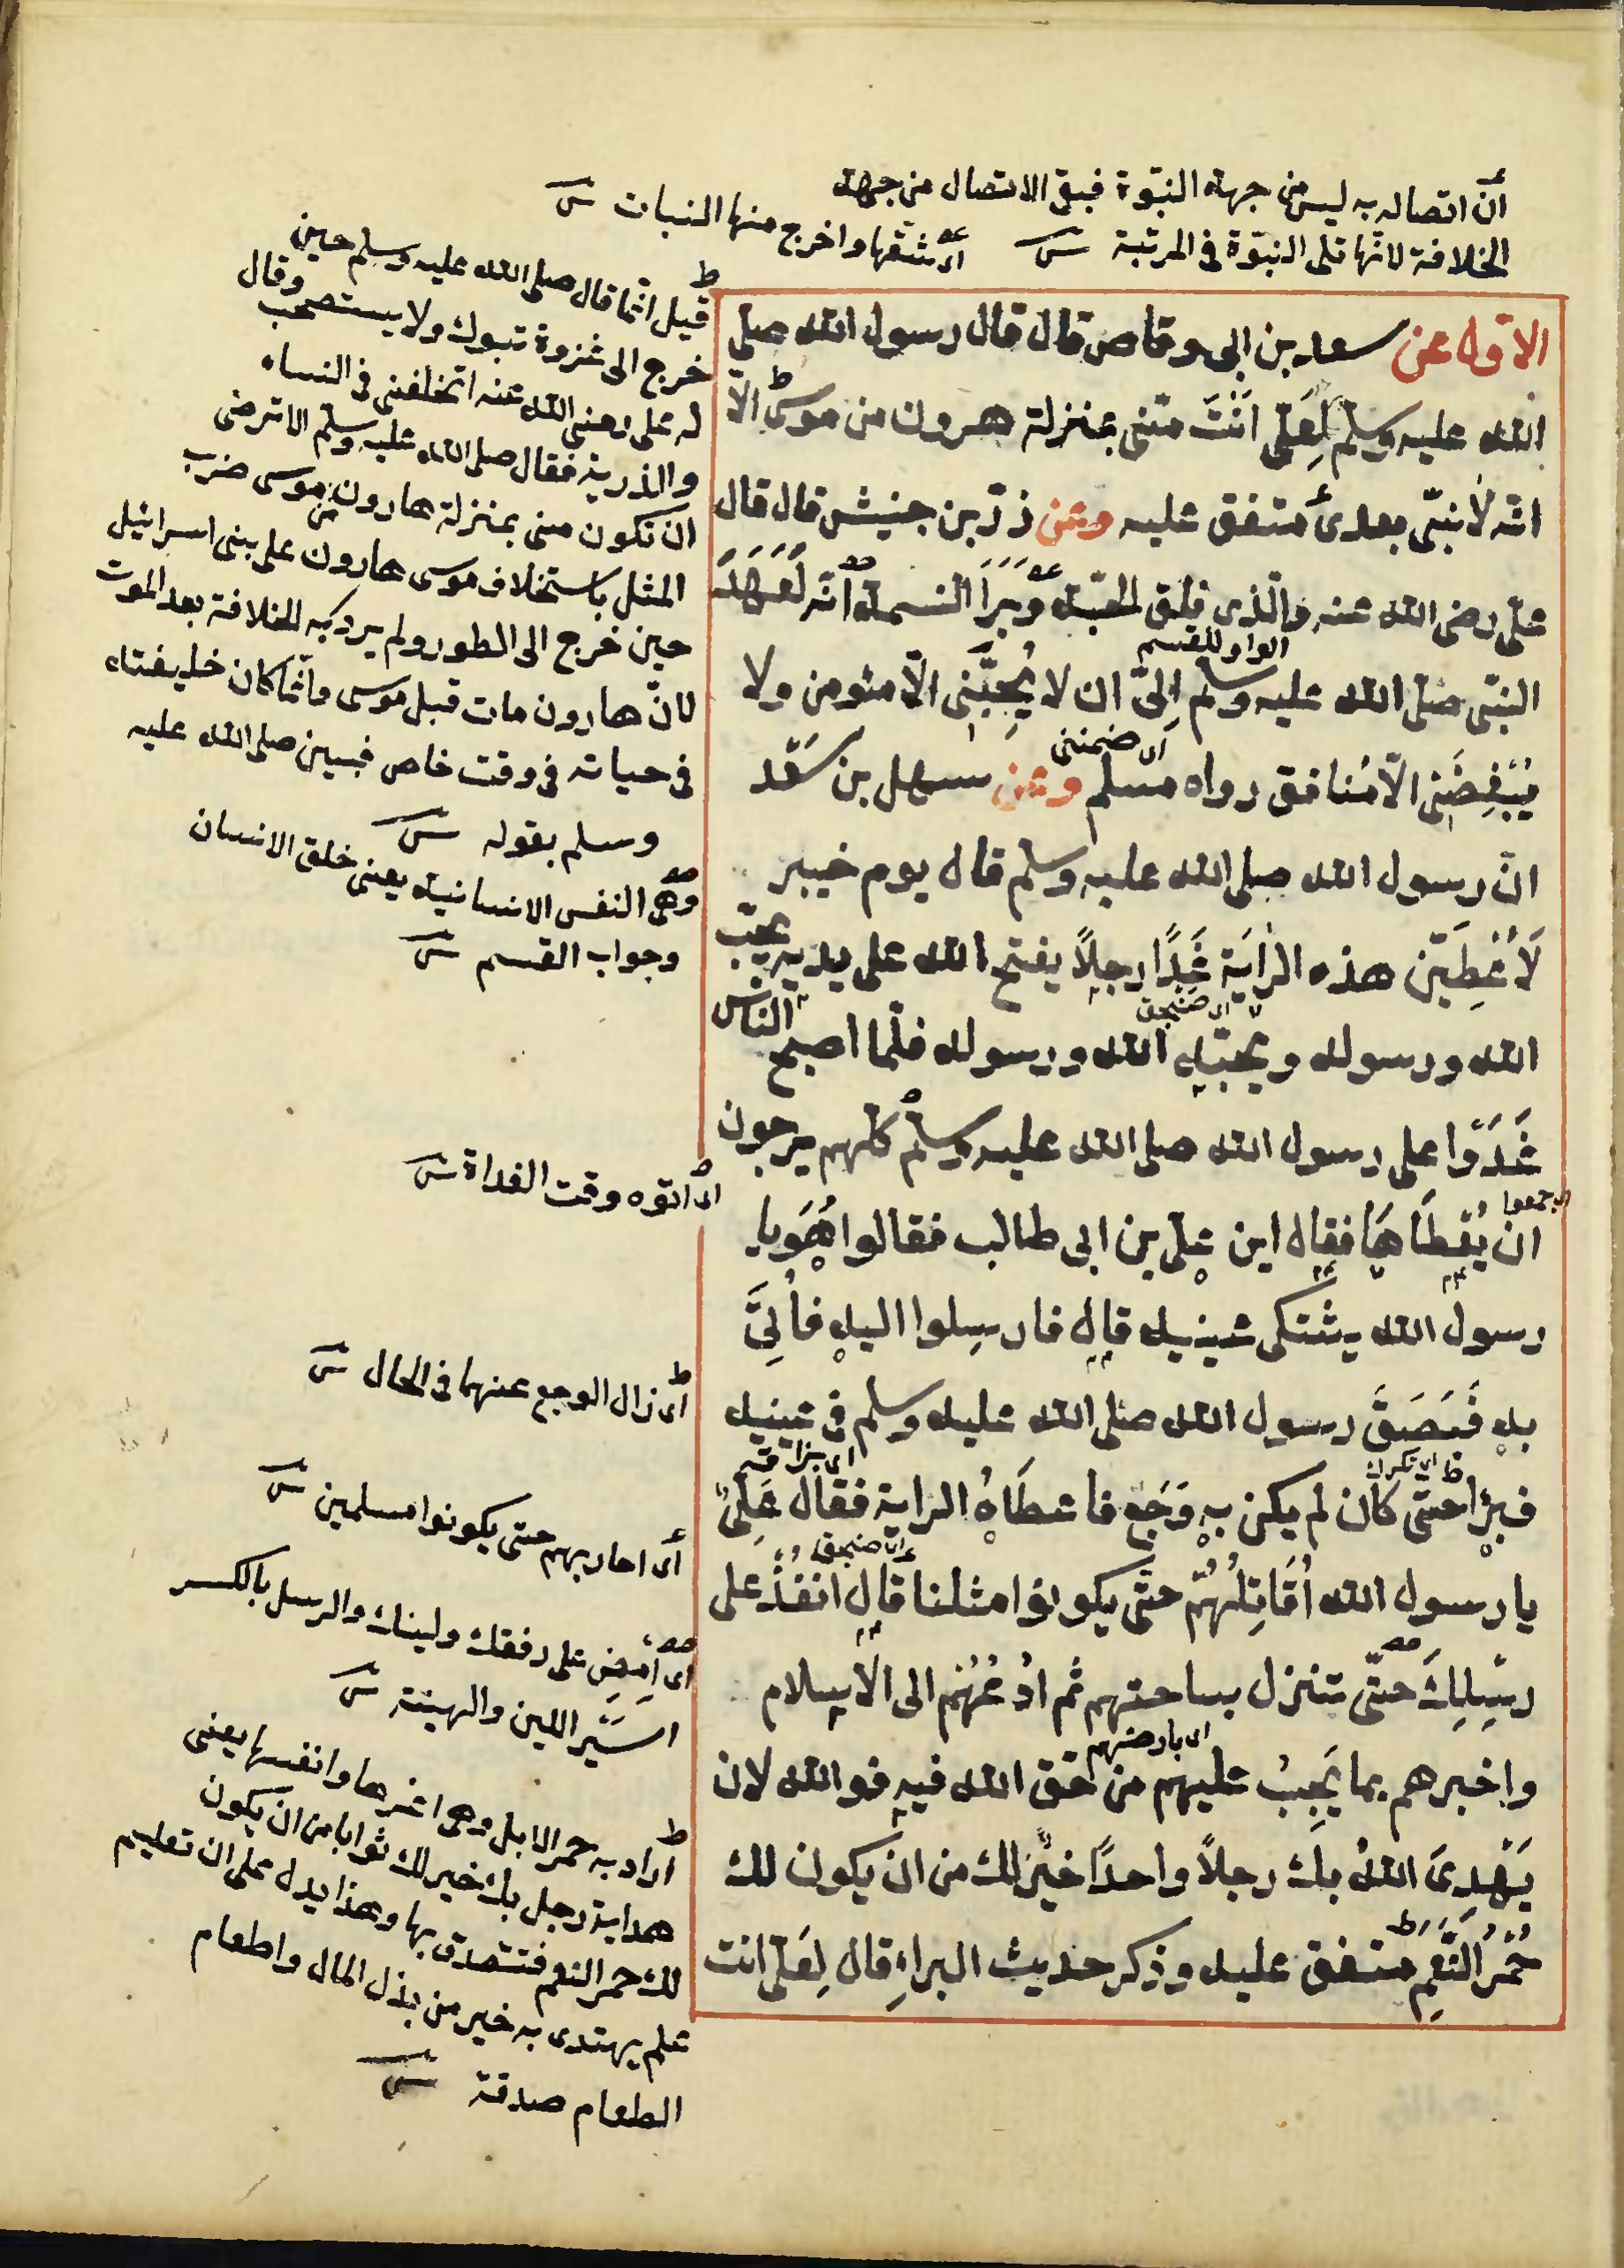 أن اتصاله به ليس من جهة النبوة فبقى الاتصال من جهة
الخلافة لانها تلى النبوة فى المرتبة ش
اى شقها واخرج منها النبات ش
الاول عن سعد بن ابى وقاص قال قال رسول الله صلى
الله عليه وسلم لِعَلىّ اَنْتَ منّى بمنزلة هرون من موسى الّا
انّه لا نبىّ بعدى متفق عليه وعن زرّ بن حنيش قال قال
علىّ رضى الله عنه والّذى فلق الحبّة وَبَرَأَ النسمة انّه لَعَهِدَ
الواو للقسم
النبىّ صلى الله عليه وسلم اِلىّ ان لا يُحِبَّنِى الّا مؤمن ولا
اى ضمننى
يُبْغِضَنِى الّا مُنافق رواه مسلم وعن سهل بن سَعْد
انّ رسول الله صلى الله عليه وسلم قال يوم خيبر
لَاُعْطِيَنّ هذه الرايَة غَدًا رجلاً يفتح الله على يديه يحبّ
اى صنجق
الله ورسوله ويحبّه الله ورسوله فلمّا اصبح الناس
غَدَوْا على رسول الله صلى الله عليه وسلم كلّهم يرجون
اى جمعوا
ان يُعْطَاهَا فقال اين علىّ بن ابى طالب فقالوا هُوَ يا
رسول الله يشتكى عينيه قال فارسِلوا اليه فاُتِىَ
به فَبَصَقَ رسول الله صلى الله عليه وسلم فى عينيه
اى بزاقه
فبرأ حتّى كان لم يكن به وَجَع فاعطَاهُ الراية فقال عَلِىٌّ
اى صنجق
يا رسول الله اُقَاتِلُهُمْ حتّى يكونوا مثلنا قال انفُذْ على
رِسْلِكَ حتّى تنزل بساحتهم ثم ادْعُهُم الى الاسلام
اى بارضهم
واخبرهم بما يَجِبُ عليهم من حقّ الله فيه فوالله لان
يَهْدِىَ اللهُ بك رجلاً واحدًا خيرٌ لك من ان يكون لك
حُمْرُ النَّعَمِ متفق عليه وذكر حديث البراءِ قال لِعَلىّ انت
قيل انّما قال صلى الله عليه وسلم حين
خرج الى غزوة تبوك ولا يستصحب وقال
له على رضى الله عنه اتخلفنى فى النساء
والذرية فقال صلى الله عليه وسلم الا ترضى
ان تكون منى بمنزلة هارون من موسى ضرب
المثل باستخلاف موسى هارون على بنى اسرائيل
حين خرج الى الطور ولم يرد به الخلافة بعد الموت
لانّ هارون مات قبل موسى وانّما كان خليفته
فى حياته فى وقت خاص فبين صلى الله عليه
وسلم بقوله ش
وهى النفس الانسانية يعنى خلق الانسان
وجواب القسم ش
اى اتوه وقت الغداة ش
اى زال الوجع عنهما فى الحال ش
اى احاربهم حتى يكونوا مسلمين ش
اى اِمضِ على رفقك ولينك والرسل بالكسر
السَيْر اللين والهينة ش
اراد به حمر الابل وهى اعزها وانفسها يعنى
هداية رجل بك خير لك ثوابا من ان يكون
لك حمر النعم فتتصدق بها وهذا يدل على ان تعليم
علم يهتدى به خير من بذل المال واطعام
الطعام صدقة ش